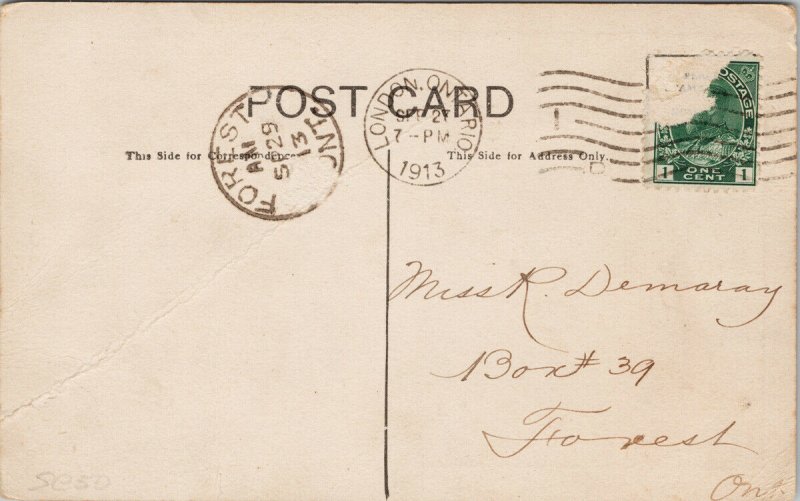 POST CARD
This Side for Correspondence.
This Side for Address Only.
FOREST
AM
SP 29
13
ONT
LONDON, ONTARIO
SEP 27
7-PM
1913
POSTAGE
1 ONE CENT 1
Miss R. Demaray
Box # 39
Forest
Ont.